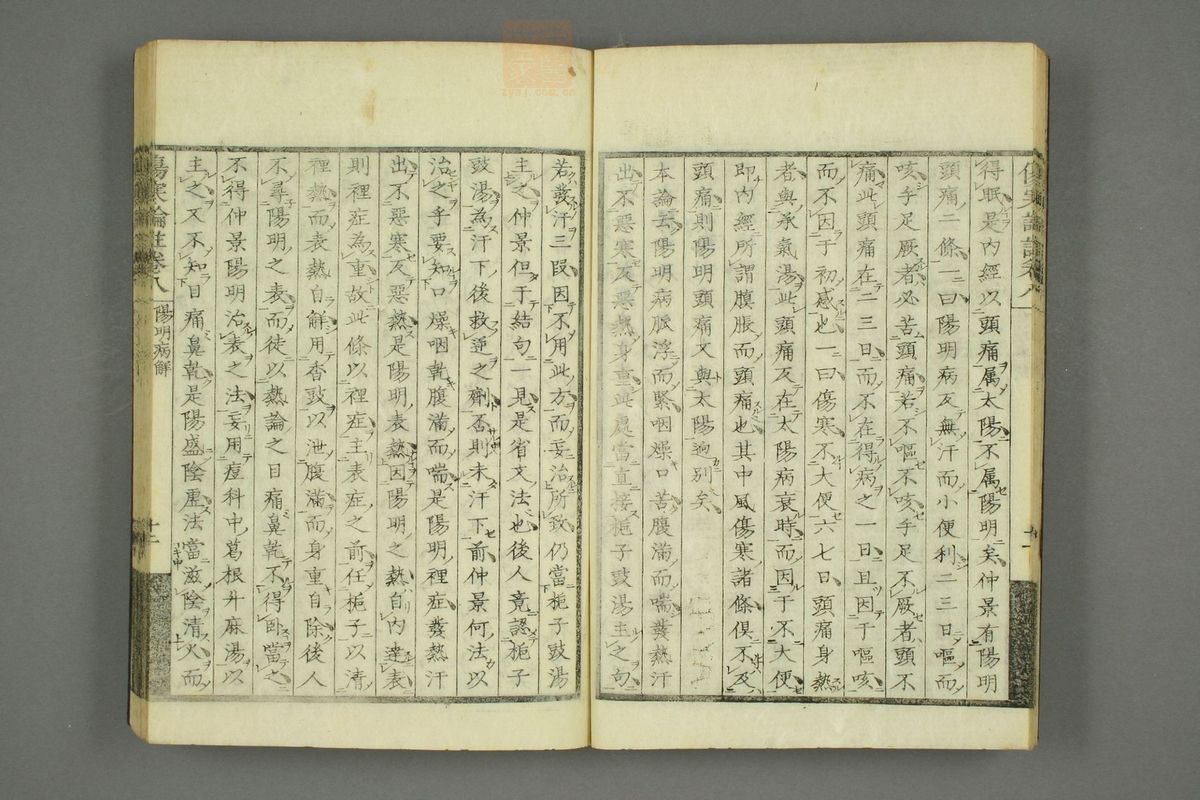 得眠是内經以頭痛属太陽不属陽明矣仲景有陽明
頭痛二條一曰陽明病反無汗而小便利二三日嘔而
咳手足厥者必苦頭痛若不嘔不咳手足不厥者頭不
痛此頭痛在二三日而不在得病之一日且因于嘔咳
而不因于初感也一曰傷寒不大便六七日頭痛身熱
者與承氣湯此頭痛反在太陽病衰時而因于不大便
即内經所謂腹脹而頭痛也其中風傷寒諸條俱不及
頭痛則陽明頭痛又與太陽迥别矣
本論云陽明病脈浮而緊咽燥口苦腹滿而喘發熱汗
出不惡寒反惡熱身重此處當直接梔子豉湯主之句
若發汗三段因不用此方而妄治所致仍當梔子豉湯
主之仲景但于結句一見是省文法也後人竟認梔子
豉湯為汗下後救逆之劑否則未汗下前仲景何法以
治之乎要知口燥咽乾腹滿而喘是陽明裡症發熱汗
出不惡寒反惡熱是陽明表熱因陽明之熱自内達表
則裡症為重故此條以裡症主表症之前任梔子以清
裡熱而表熱自解用香豉以泄腹滿而身重自除後人
不尋陽明之表而徒以熱論之目痛鼻乾不得卧當之
不得仲景陽明治表之法妄用痘科中葛根升麻湯以
主之又不知目痛鼻乾是陽盛陰虛法當滋陰清火而
傷寒論註卷八
陽明病解
十二
zysj.com.cn